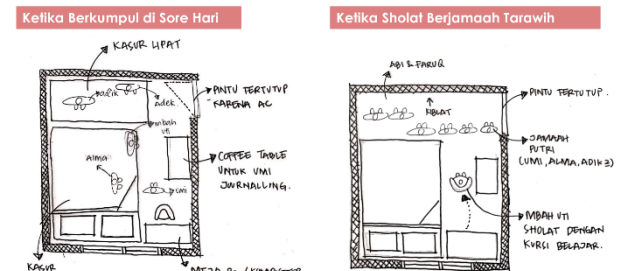 Ketika Berkumpul di Sore Hari
KASUR LIPAT
adik
adek
PINTU TERTUTUP
KARENA AC
mbah
uti
Alma
COFFEE TABLE
UNTUK UMI
JURNALLING.
umi
KASUR
Ketika Sholat Berjamaah Tarawih
ABI & FARUQ
KIBLAT
PINTU TERTUTUP.
JAMAAH
PUTRI
(UMI, ALMA, ADIK2)
MBAH UTI
SHOLAT DENGAN
KURSI BELAJAR.